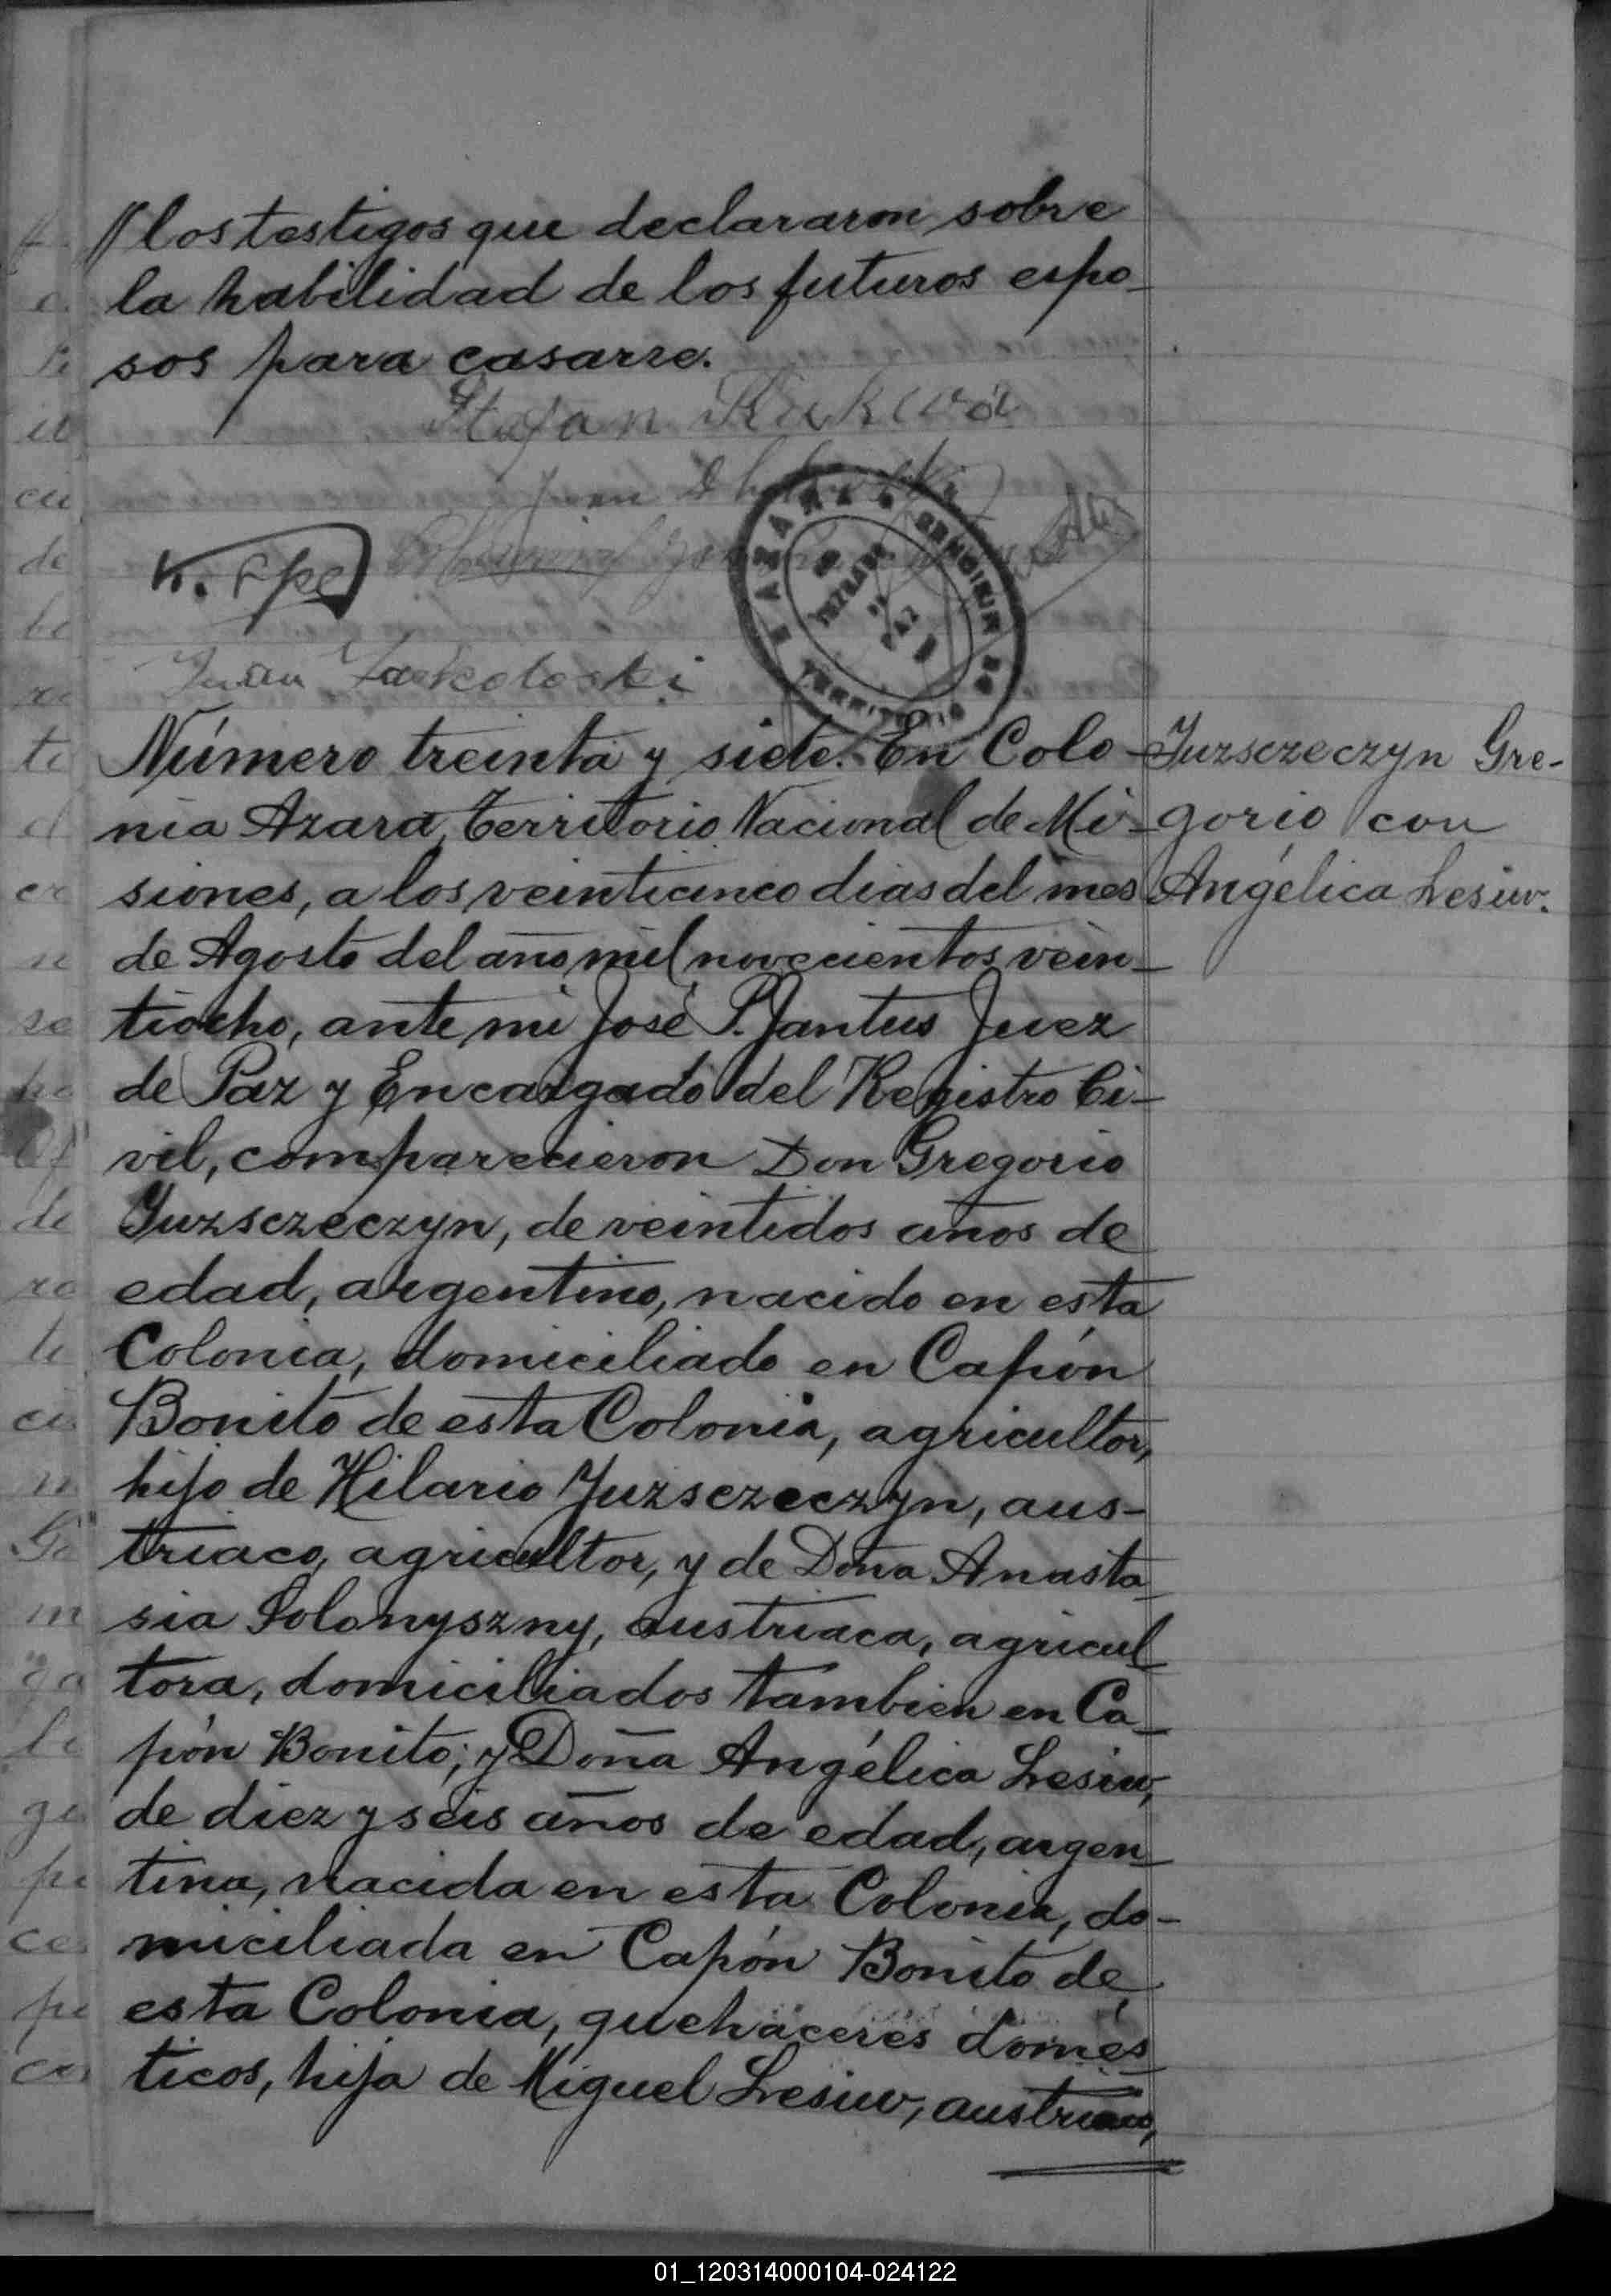 // los testigos que declararon sobre
la habilidad de los futuros espo-
sos para casarse.
Stefan
Juan
Juan
Número treinta y siete. En Colo-
nia Azara, Territorio Nacional de Mi-
siones, a los veinticinco dias del mes
de Agosto del año mil novecientos vein-
tiocho, ante mi José P. Jantus Juez
de Paz y Encargado del Registro Ci-
vil, comparecieron Don Gregorio
Juzsczeczyn, de veintidos años de
edad, argentino, nacido en esta
Colonia, domiciliado en Capón
Bonito de esta Colonia, agricultor,
hijo de Hilario Juzsczeczyn, aus-
triaco, agricultor, y de Doña Anasta-
sia Solonyszny, austriaca, agricul-
tora, domiciliados tambien en Ca-
pón Bonito; y Doña Angélica Lesiw,
de diez y seis años de edad, argen-
tina, nacida en esta Colonia, do-
miciliada en Capón Bonito de
esta Colonia, quehaceres domés-
ticos, hija de Miguel Lesiw, austriaco,
Juzsczeczyn Gre-
gorio con
Angélica Lesiw.
01_120314000104-024122